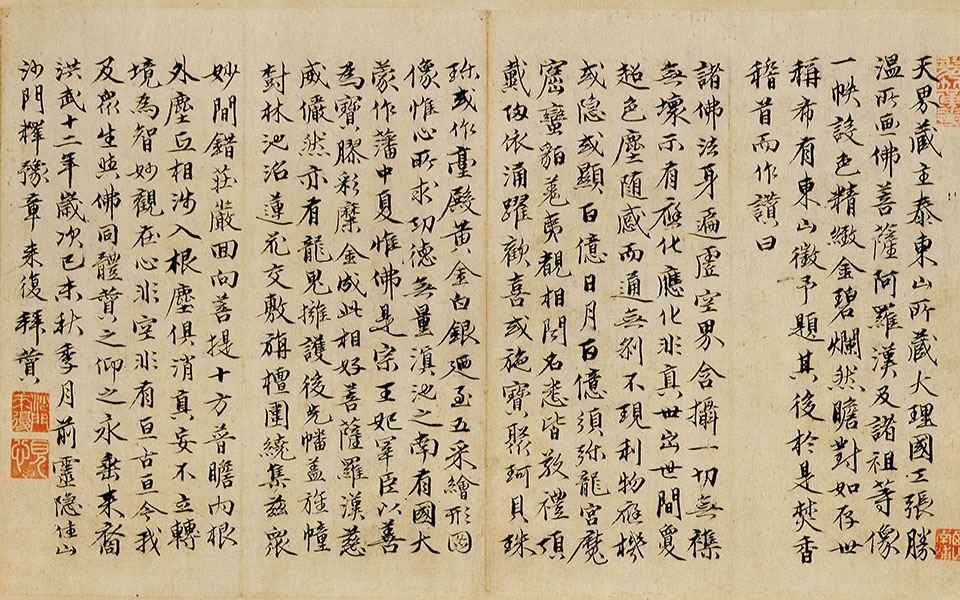 天界藏主泰東山所藏大理國工張勝
温所画佛菩薩阿羅漢及諸祖等像
一帙設色精緻金碧爛然瞻對如存世
稱希有東山徵予題其後於是焚香
稽首而作讃曰
諸佛法身遍虛空界含攝一切無襍
無壞示有應化應化非真世出世間敻
超色塵随感而通無刹不現利物應機
或隐或顯百億日月百億須弥龍宮魔
窟蠻貊羌夷覩相聞名悉皆敬禮頂
戴歸依涌躍歡喜或施寳聚珂貝珠
珎或作臺殿黄金白銀廼至五采繪形圖
像惟心所求功德無量滇池之南有國大
蒙作藩中夏惟佛是宗王妃宰臣以善
為寳膠彩糜金成此相好菩薩羅漢慈
威儼然亦有龍鬼擁護後先幡盖旌幢
樹林池沼蓮花交敷旃檀圍繞集兹衆
妙間錯莊嚴回向菩提十方普瞻内根
外塵互相涉入根塵俱消真妄不立轉
境為智妙觀在心非空非有亘古亘今我
及衆生與佛同體賛之仰之永垂来裔
洪武十二年歲次己未秋季月前靈隐住山
沙門釋豫章来復拜賛